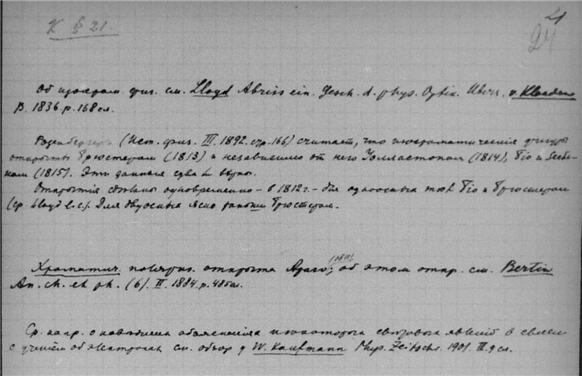 К § 21.
21
24
Об изохром. фиг. см. Lloyd Abriss ein. Gesch. d. phys. Optik. Übers. v. Kloeden
B. 1836 p. 168 сл.
Розенбергер (Ист. физ. III. 1892. стр. 166) считает, что изохроматические фигуры
открыты Брюстером (1813) и независимо от него Волластоном (1814) Био и Зеебе-
ком (1815). Эти данные едва ли верны.
Открытие сделано одновременно - в 1812 г. - для одноосных тел Био и Брюстером
(ср. Lloyd l. c.). Для двуосных ясно раньше Брюстером.
Хроматич. поляриз. открыта Араго (1811); об этом откр. см. Bertin
An. ch. et ph. (6). II. 1884. p. 485 сл.
Ср. напр. с новейшими объяснения некоторых световых явлений в связи
с учением об электронах см. обзор у W. Kaufmann Phys. Zeitschr. 1901. III. 9 сл.